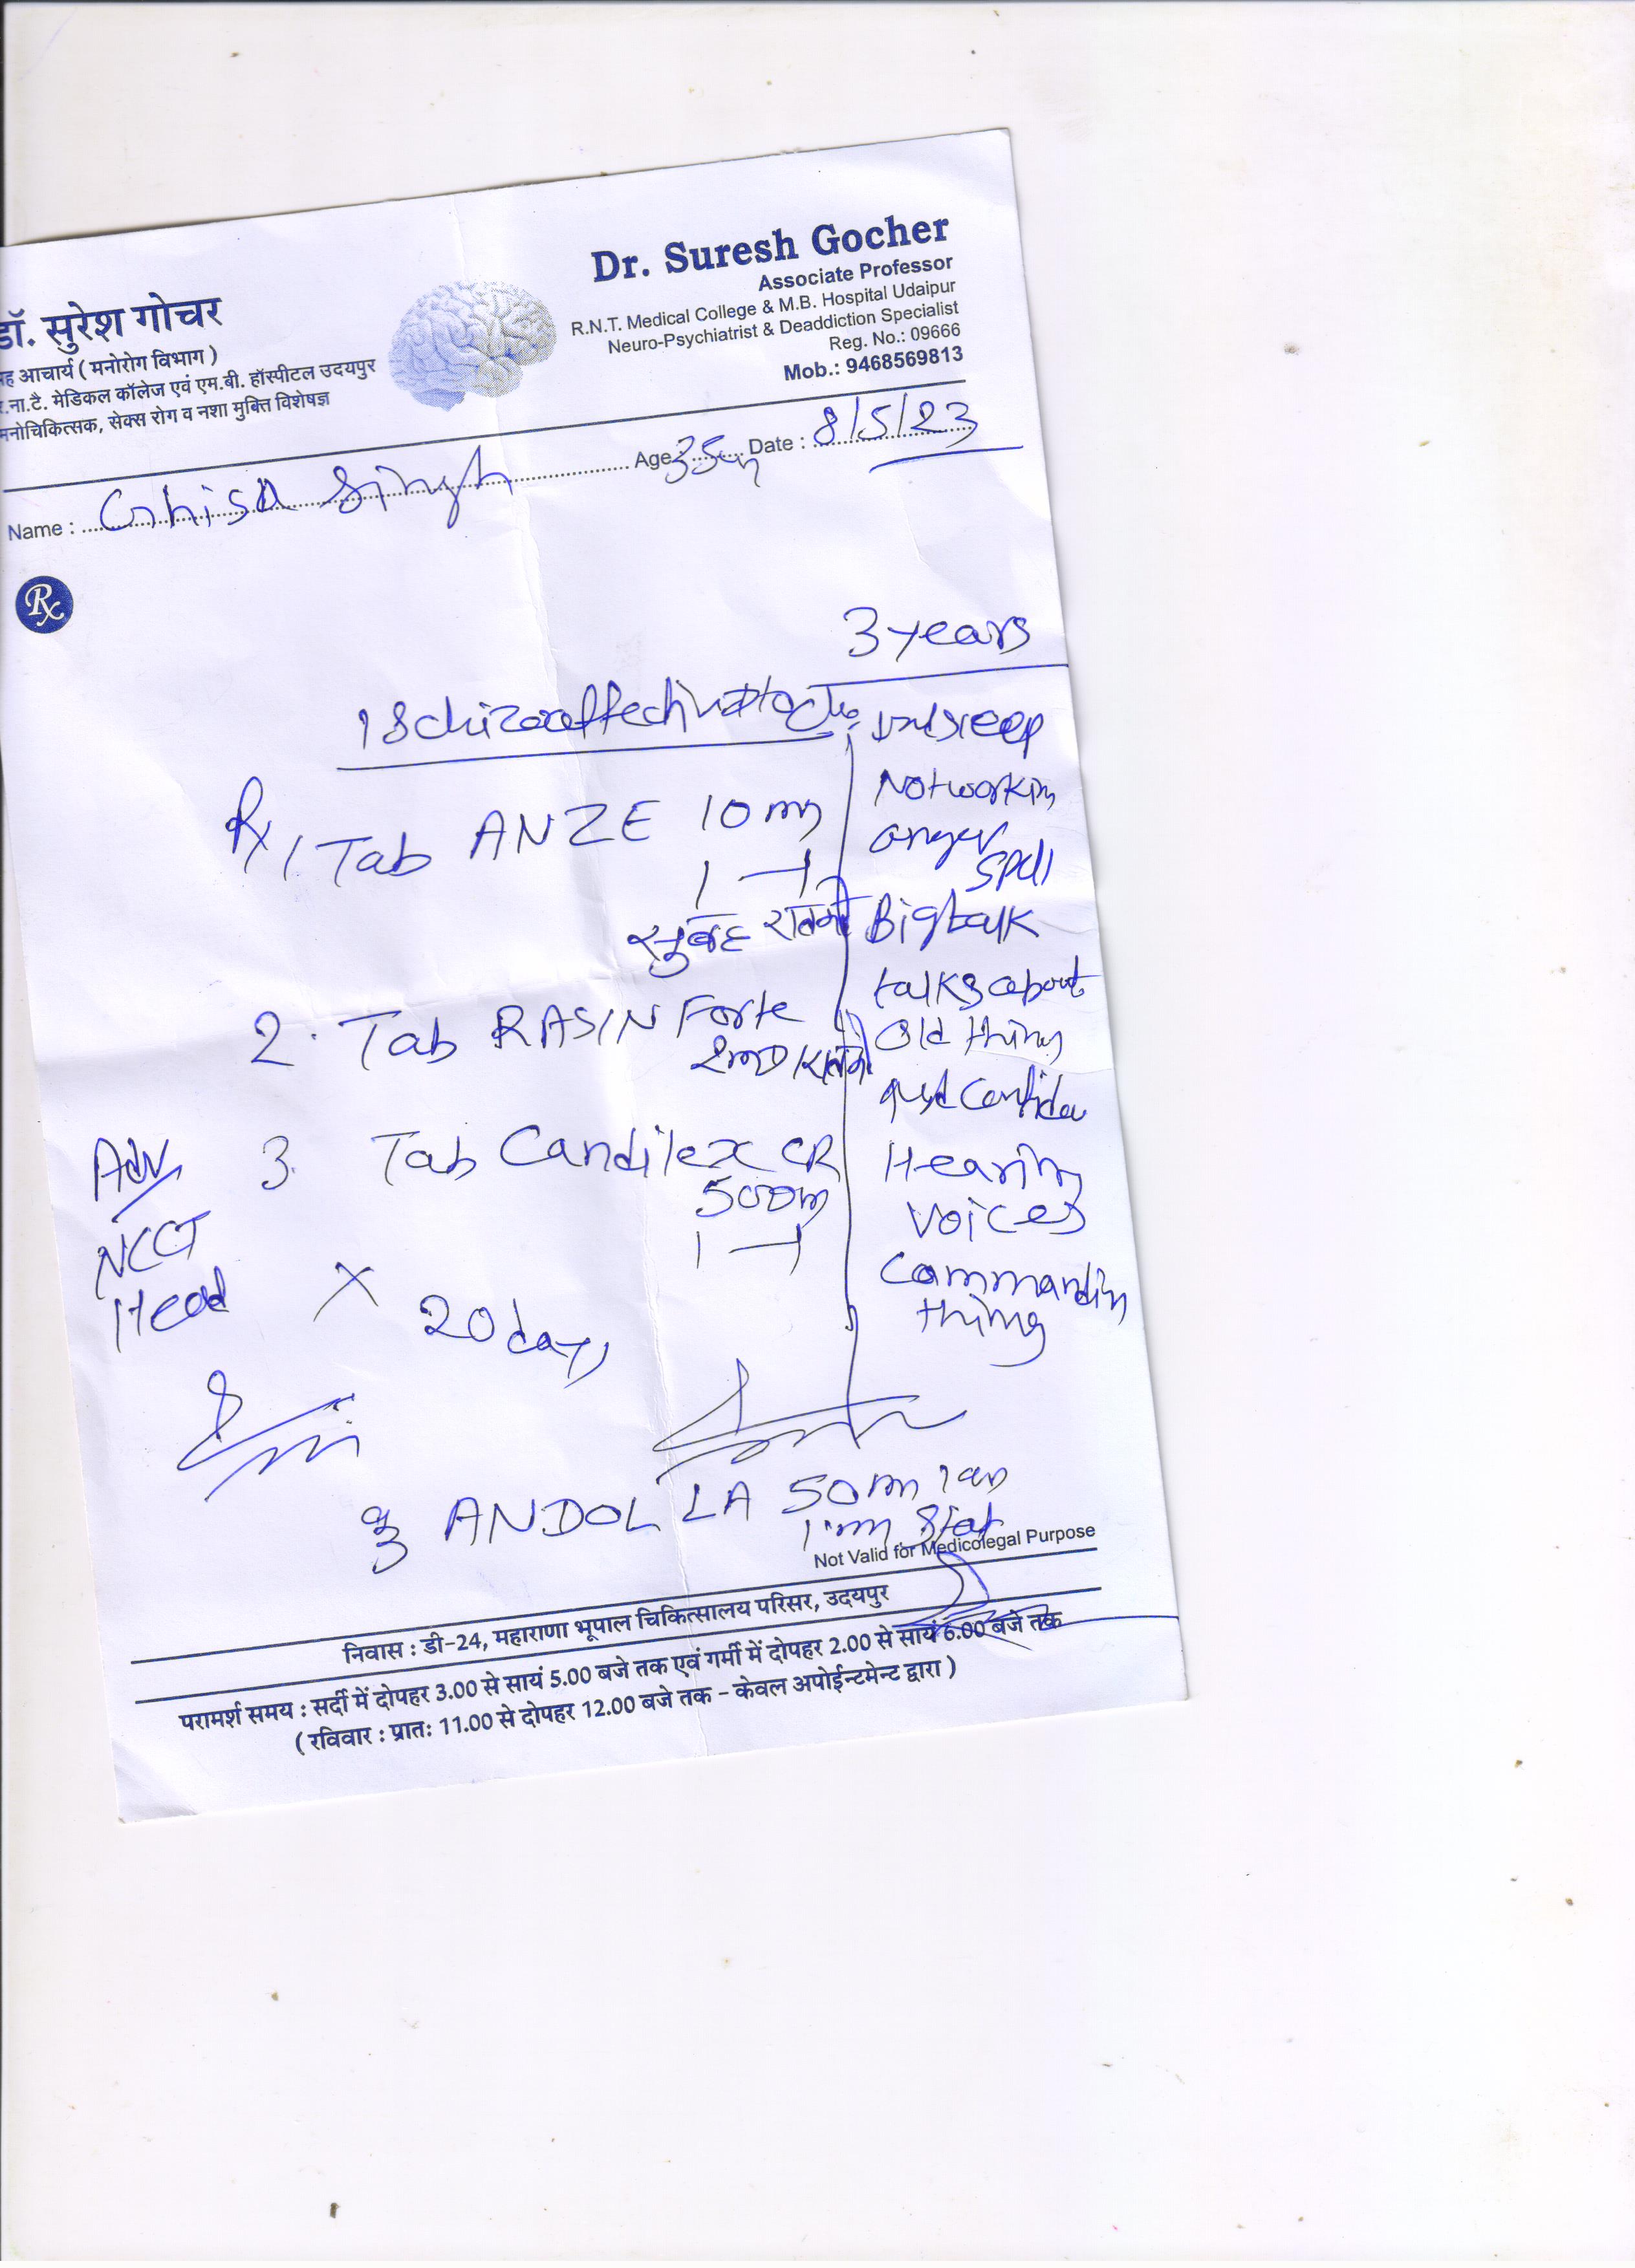 डॉ. सुरेश गोचर
ह आचार्य ( मनोरोग विभाग )
.ना.टै. मेडिकल कॉलेज एवं एम.बी. हॉस्पीटल उदयपुर
मनोचिकित्सक, सेक्स रोग व नशा मुक्ति विशेषज्ञ
Dr. Suresh Gocher
Associate Professor
R.N.T. Medical College & M.B. Hospital Udaipur
Neuro-Psychiatrist & Deaddiction Specialist
Reg. No.: 09666
Mob.: 9468569813
Name : Ghisa Singh Age : 35 Date : 8/5/23
Rx
3 years
Not working
anger
spell
Big talk
talks about
old things
Hearing
voices
Commanding
things
Rx
1 Tab ANZE 10 mg
1 — 1
सुबह रातको
2. Tab RASIN Forte
3. Tab Candilex CR
500mg
1 — 1
Adv
NCCT
Head
X 20 days
ANDOL LA 50 mg
1 im Stat
Not Valid for Medicolegal Purpose
निवास : डी-24, महाराणा भूपाल चिकित्सालय परिसर, उदयपुर
परामर्श समय : सर्दी में दोपहर 3.00 से सायं 5.00 बजे तक एवं गर्मी में दोपहर 2.00 से सायं 6.00 बजे तक
( रविवार : प्रातः 11.00 से दोपहर 12.00 बजे तक - केवल अपोईन्टमेन्ट द्वारा )